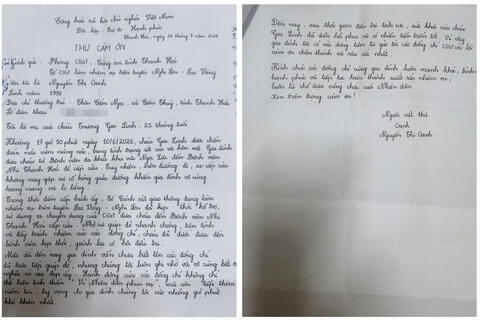 Cộng hoà xã hội chủ nghĩa Việt Nam
Độc lập - Tự do - Hạnh phúc
Thanh Hoá, ngày
THƯ CẢM ƠN
Kính gửi: Phòng CSGT, Công an tỉnh Thanh Hoá
Tổ CSGT làm nhiệm vụ trên tuyến Nghi Sơn - Sao Vàng
tên tôi là Nguyễn Thị Oanh
sinh năm 1996
Địa chỉ thường trú: Thôn Cẩm Ngọc, xã Cẩm Thuỷ, tỉnh Thanh Hoá
Số điện thoại:
Tôi là mẹ của cháu Trương Gia Linh, 25 tháng tuổi
Khoảng 17 giờ 50 phút ngày 10/6/2026, cháu Gia Linh được chẩn
đoán mắc viêm màng não, trong tình trạng rất nguy hiểm. Gia đình
đưa cháu từ Bệnh viện đa khoa khu vực Ngọc Lặc đến Bệnh viện
Nhi Thanh Hoá để cấp cứu. Tuy nhiên, trên đường đi, xe cấp cứu
không may gặp sự cố hỏng giữa đường khiến gia đình vô cùng
hoang mang và lo lắng.
Trong thời điểm cấp bách ấy, Tổ Cảnh sát giao thông đang làm
nhiệm vụ trên tuyến Sao Vàng - Nghi Sơn đã kịp thời hỗ trợ,
sử dụng xe chuyên dụng của CSGT đưa cháu đến Bệnh viện Nhi
Thanh Hoá cấp cứu. Nhờ sự giúp đỡ nhanh chóng, tận tình
và đầy trách nhiệm của các đồng chí, cháu đã được đưa đến
bệnh viện kịp thời, giành lại cơ hội điều trị.
Mặc dù đến nay gia đình vẫn chưa biết tên các đồng chí
đã trực tiếp giúp đỡ, nhưng chúng tôi luôn ghi nhớ và vô cùng biết ơn
nghĩa cử cao đẹp ấy. Hành động của các đồng chí không chỉ
thể hiện tinh thần "Vì Nhân dân phục vụ", mà còn tiếp thêm
niềm tin, hy vọng cho gia đình chúng tôi vào những giờ phút
khó khăn nhất.
Đến nay, sau thời gian điều trị tích cực, sức khoẻ của cháu
Gia Linh đã dần hồi phục và có nhiều tiến triển tốt. Vì vậy
gia đình tôi có vài dòng tâm tư gửi tới các đồng chí CSGT và lời
cảm ơn chân thành và sâu sắc nhất.
Kính chúc các đồng chí cùng gia đình luôn mạnh khoẻ, bình
hạnh phúc và tiếp tục hoàn thành xuất sắc nhiệm vụ,
luôn là chỗ dựa vững chắc của Nhân dân.
Xin trân trọng cảm ơn!
Người viết thư
Oanh
Nguyễn Thị Oanh